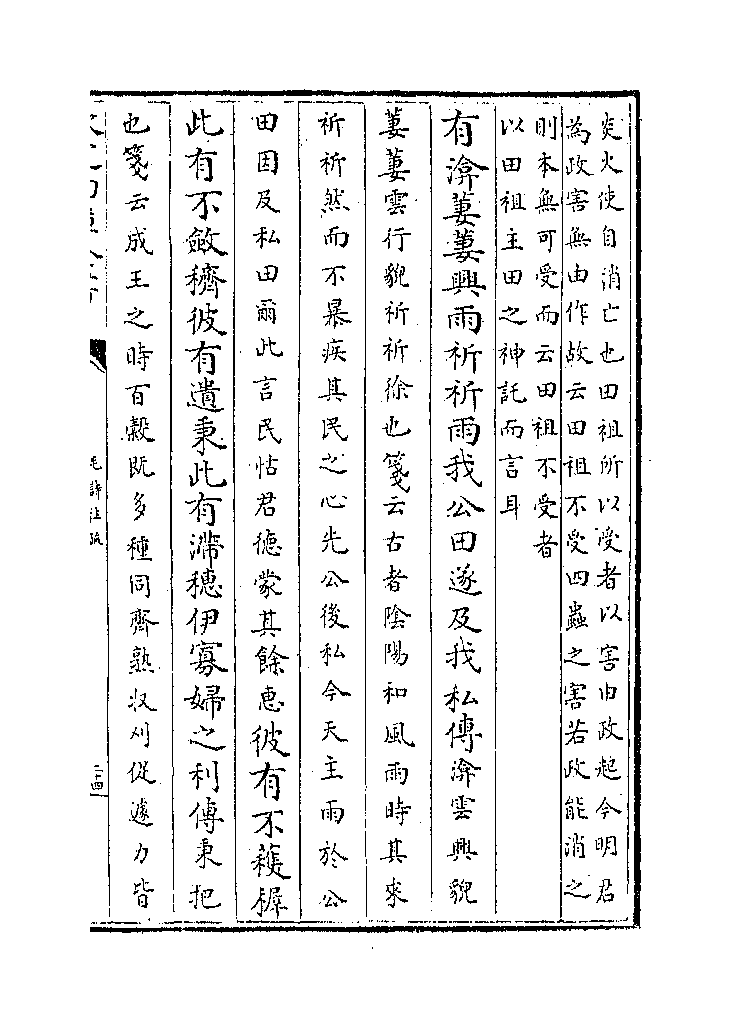 炎火使自消亡也田祖所以受者以害由政起今明君
為政害無由作故云田祖不受四蟲之害若政能消之
則本無可受而云田祖不受者
以田祖主田之神託而言耳
有渰萋萋興雨祈祈雨我公田遂及我私傳渰雲興貌
萋萋雲行貌祈祈徐也箋云古者陰陽和風雨時其來
祈祈然而不暴疾其民之心先公後私今天主雨於公
田因及私田爾此言民怙君德蒙其餘惠彼有不穫穉
此有不斂穧彼有遺秉此有滯穗伊寡婦之利傳秉把
也箋云成王之時百穀既多種同齊熟收刈促遽力皆
毛詩注疏
二十四